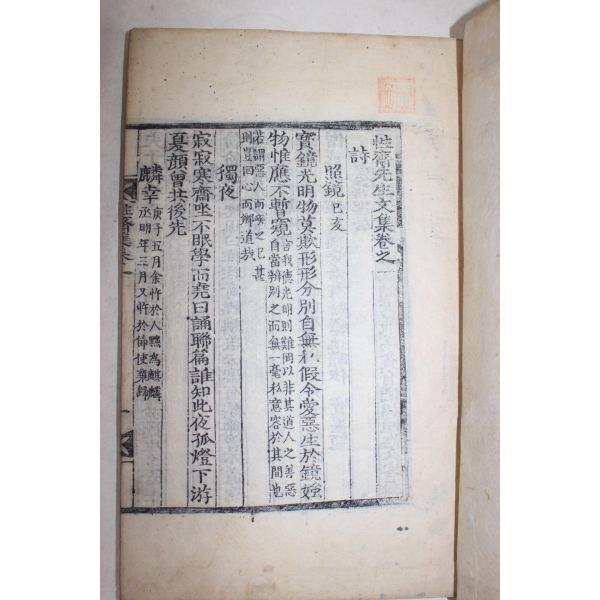 性齋先生文集卷之一
詩
照鏡 己亥
寶鏡光明物莫欺形形分別自無私假令愛惡生於鏡妍
物惟應不暫窺 言我德光明則難罔以非其道人之善惡
自當辨別之而無一毫私意容於其間也
若謂惡人而疾之已甚
則豈回心而鄉道哉
獨夜
寂寂寒齋坐不眠學而堯曰誦聯篇誰知此夜孤燈下游
夏顏曾共後先
麟幸 庚子五月余忤於人黜爲麒麟
丞明年三月又忤於 使棄歸
性齋集卷一